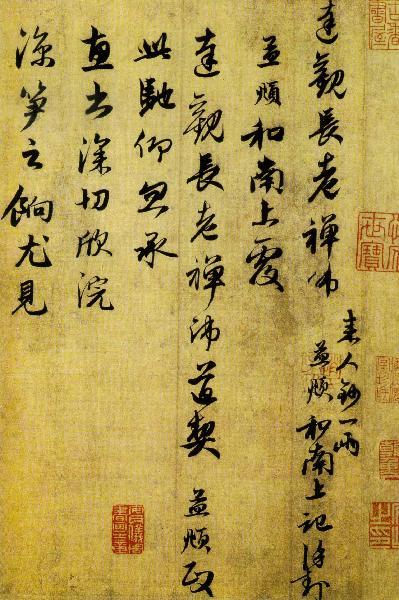 達觀長老禪師
来人鈔一兩
孟頫和南上記謹封
孟頫和南上覆
達觀長老禪師道契 孟頫政
此馳仰忽承
惠書深切欣浣
凉笋之餉尤見